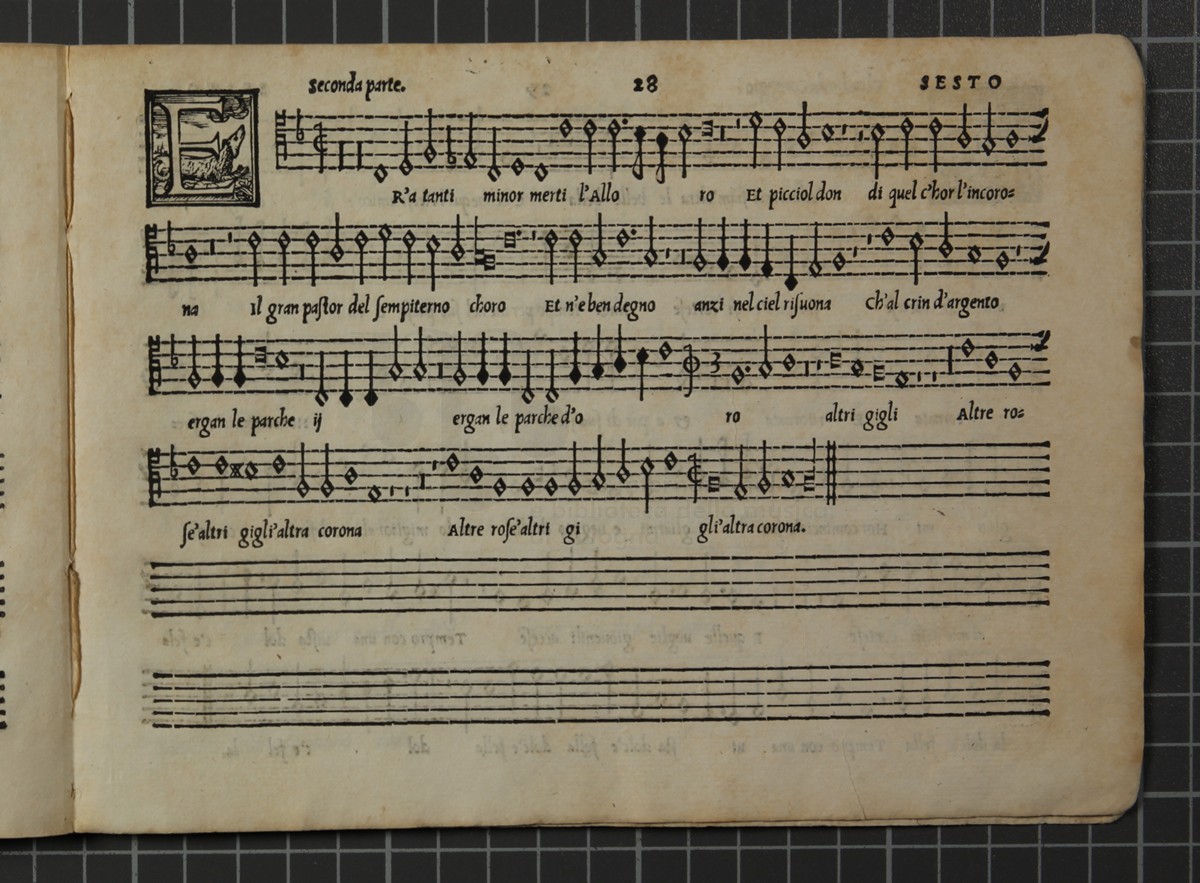 Seconda parte. 28 SESTO
ER'a tanti minor merti l'Allo ro Et picciol don di quel c'hor l'incoro=
na Il gran paſtor del ſempiterno choro Et n'e ben degno anzi nel ciel riſuona Ch'al crin d'argento
ergan le parche ij ergan le parche d'o ro altri gigli Altre ro=
ſe'altri gigli'altra corona Altre roſe'altri gi gli'altra corona.